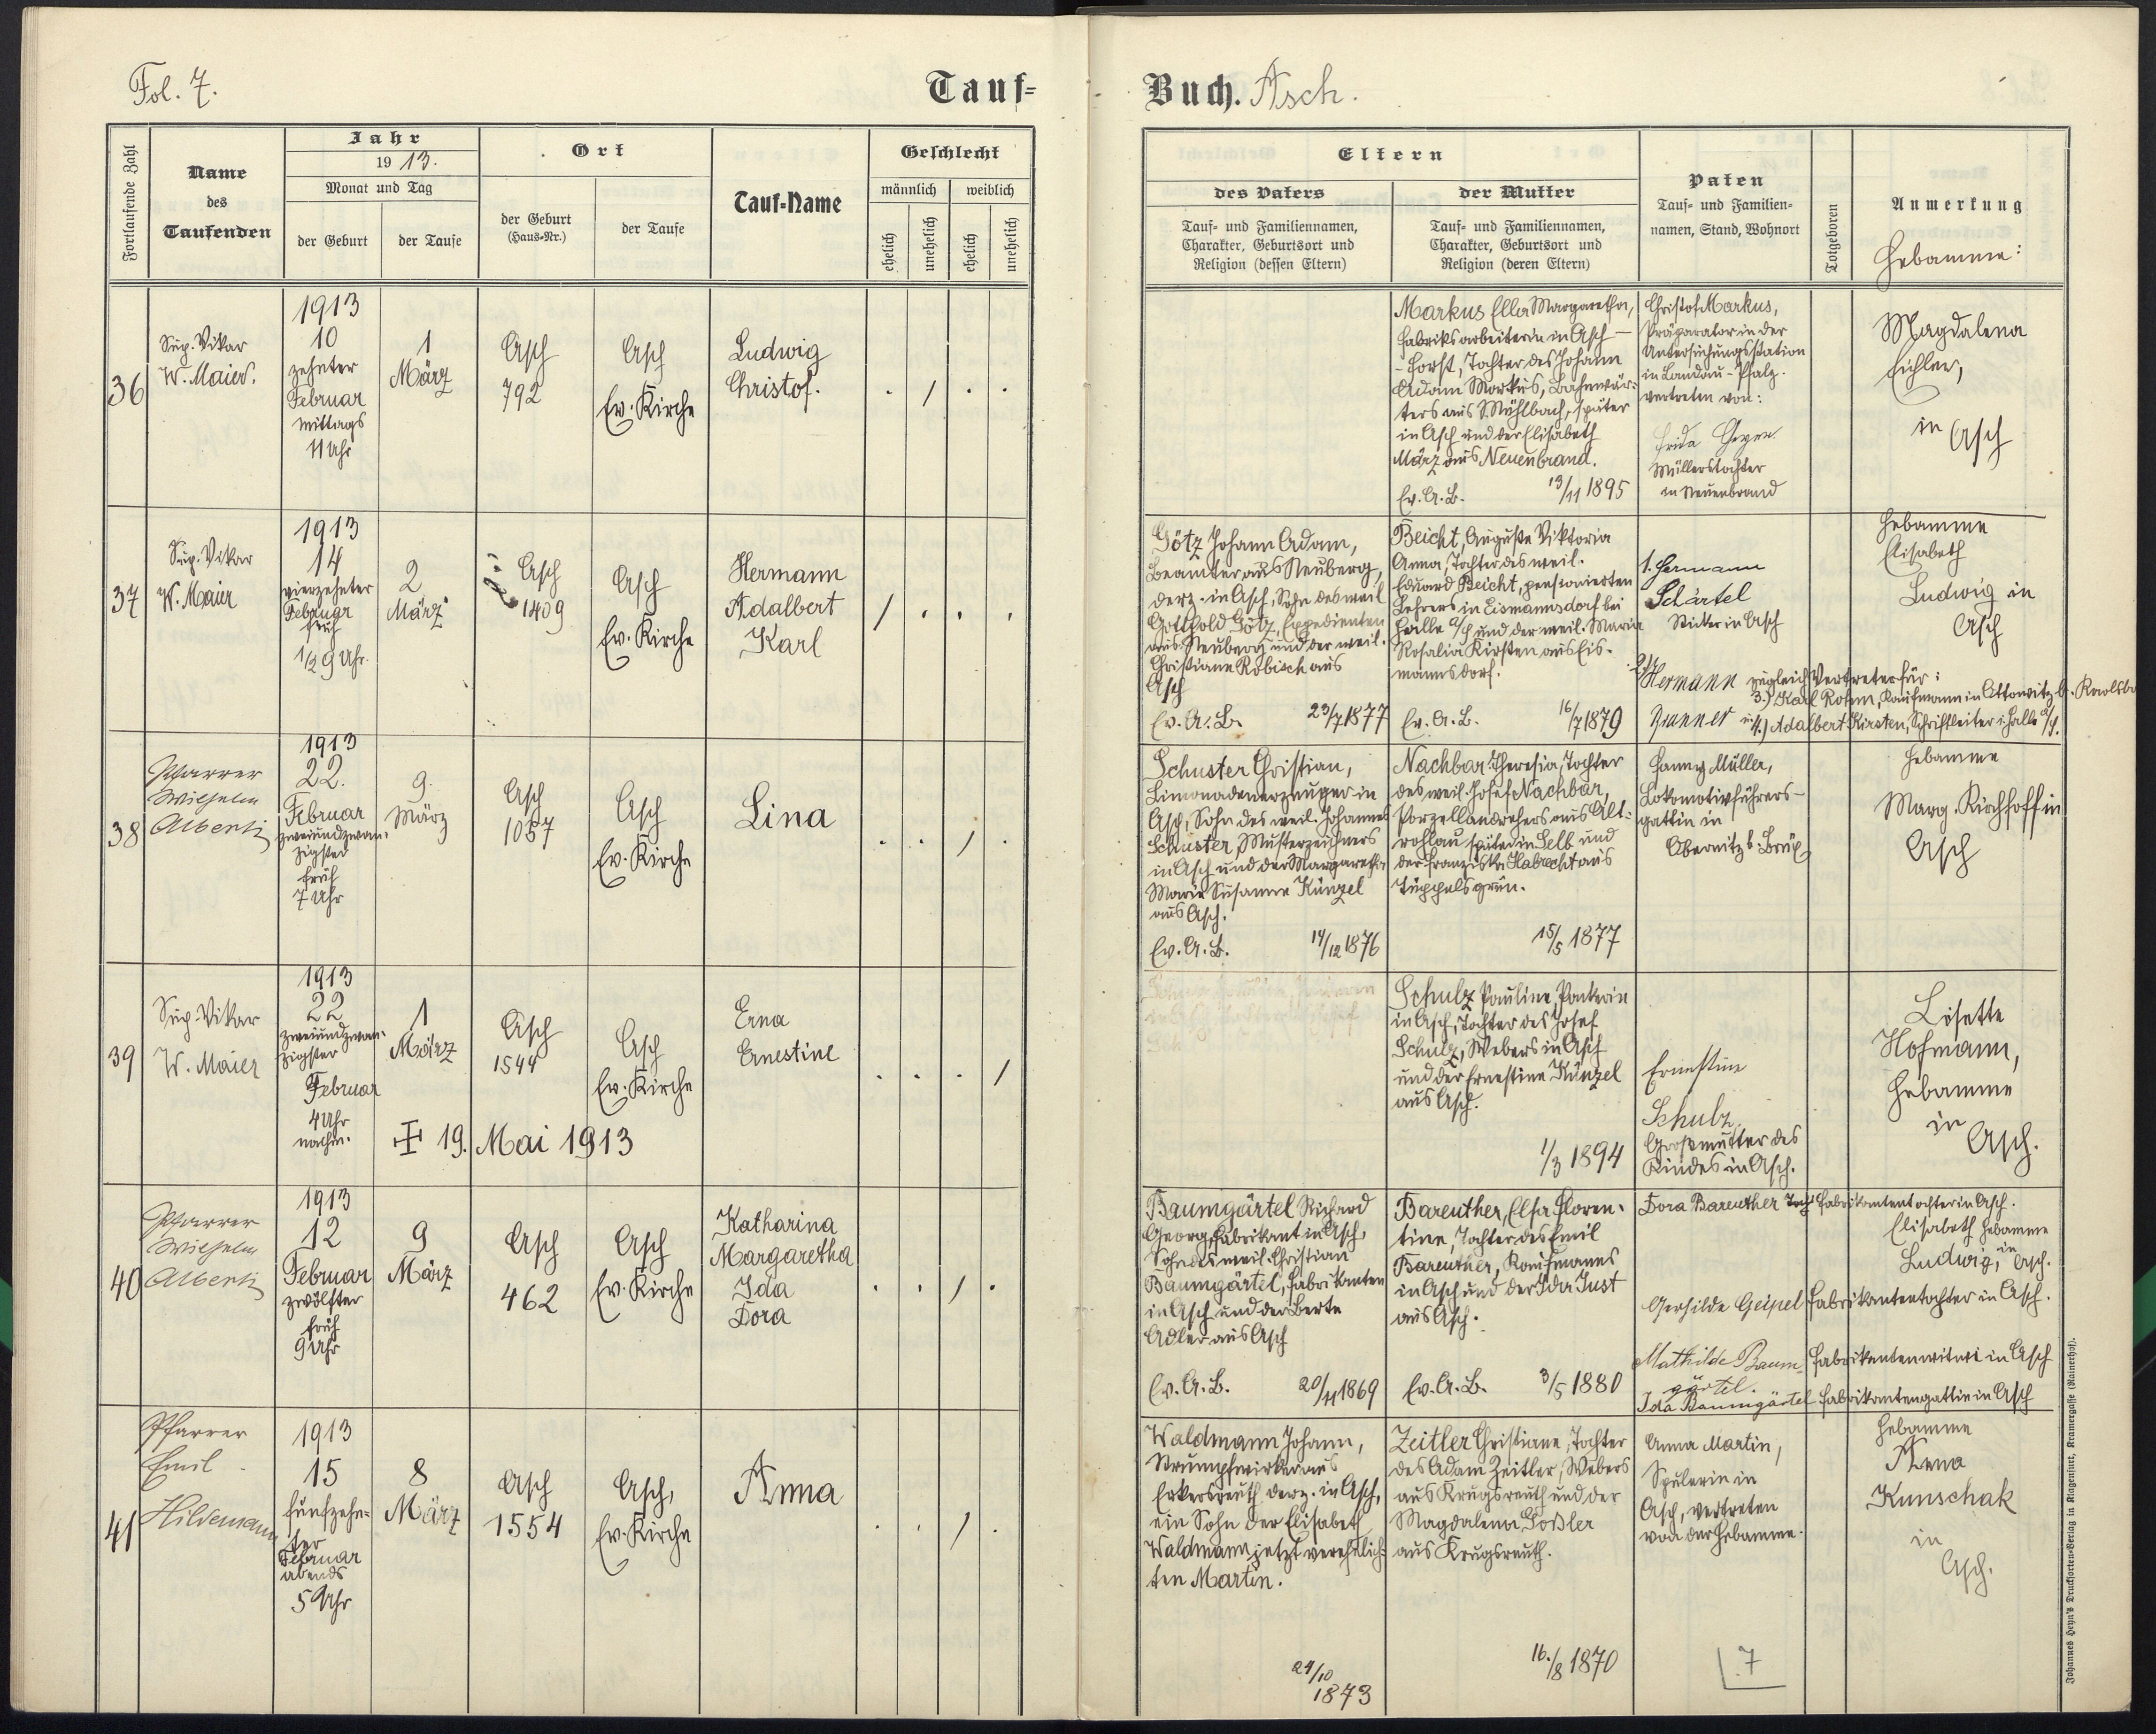 Fol. 7.
Tauf=
Fortlaufende Zahl
Name
des
Taufenden
Jahr
1913.
Monat und Tag
der Geburt
der Taufe
Ort
der Geburt
(Haus-Nr.)
der Taufe
Tauf-Name
Geschlecht
männlich
weiblich
ehelich
unehelich
ehelich
unehelich
36
Sup. Vikar
W. Maier.
1913
10
zehnter
Februar
mittags
11 Uhr
1
März
Asch
792
Asch
Ev. Kirche
Ludwig
Christof.
37
Sup. Vikar
W. Maier
1913
14
vierzehnter
Februar
früh
1/2 9 Uhr.
2
März
Asch
1409
Asch
Ev. Kirche
Hermann
Adalbert
Karl
38
Pfarrer
Wilhelm
Alberti
1913
22.
Februar
zweiundzwan-
zigster
früh
7 Uhr
9.
März
Asch
1057
Asch
Ev. Kirche
Lina
39
Sup. Vikar
W. Maier
1913
22
zweiundzwan-
zigster
Februar
4 Uhr
nachm.
1
März
Asch
1544
Asch
Ev. Kirche
Erna
Ernestine
19. Mai 1913
40
Pfarrer
Wilhelm
Alberti
1913
12
Februar
zwölfter
früh
9 Uhr
9
März
Asch
462
Asch
Ev. Kirche
Katharina
Margaretha
Ida
Dora
41
Pfarrer
Emil
Hildemann
1913
15
fünfzehn-
ter
Februar
abends
5 Uhr
8
März
Asch
1554
Asch,
Ev. Kirche
Anna
Buch. Asch.
Eltern
des Vaters
Tauf- und Familiennamen,
Charakter, Geburtsort und
Religion (dessen Eltern)
der Mutter
Tauf- und Familiennamen,
Charakter, Geburtsort und
Religion (deren Eltern)
Paten
Tauf- und Familien-
namen, Stand, Wohnort
Totgeboren
Anmerkung
Hebamme:
Markus Ella Margaretha,
Fabriksarbeiterin in Asch -
- Forst, Tochter des Johann
Adam Markus, Bahnwär-
ters aus Mühlbach, später
in Asch und der Elisabeth
März aus Neuenbrand.
Ev. A. B. 13/11 1895
Christof Markus,
Präparator in der
Untersuchungsstation
in Landau - Pfalz.
vertreten von:
Frida Geyer
Müllerstochter
in Neuenbrand
Magdalena
Eichler,
in Asch
Götz Johann Adam,
Beamter aus Neuberg,
derz. in Asch, Sohn des weil
Gotthold Götz, Expedienten
aus Neuberg und der weil.
Christiane Robisch aus
Asch
Ev. A. B. 23/7 1877
Beicht, Auguste Viktoria
Anna, Tochter des weil.
Eduard Beicht, pensionierten
Lehrers in Eismannsdorf bei
Halle a/S und der weil. Maria
Rosalia Kirsten aus Eis-
mannsdorf.
Ev. A. B. 16/7 1879
1. Hermann
Schärtel
Sticker in Asch
2. Hermann zugleich Vertreter für:
3.) Karl Rohm, Kaufmann in
u. 4.) Adalbert Kirsten, Schriftleiter i. Halle a/S.
Hebamme
Elisabeth
Ludwig in
Asch
Schuster Christian,
Limonadenerzeuger in
Asch, Sohn des weil. Johannes
Schuster, Musterzeichners
in Asch und der Margaretha
Maria Susanna Künzel
aus Asch.
Ev. A. B. 14/12 1876
Nachbar Theresia, Tochter
des weil. Josef Nachbar,
Porzellandrehers aus Alt-
rohlau später in Selb und
der Franziska Habrecht aus
Tüppelsgrün.
15/5 1877
Fanny Müller,
Lokomotivführers-
gattin in
Obernitz b. Brüx
Hebamme
Marg. Kirchhoff in
Asch
Schulz Pauline, Packerin
in Asch, Tochter des Josef
Schulz, Webers in Asch
und der Ernestine Künzel
aus Asch.
1/3 1894
Ernestine
Schulz,
Großmutter des
Kindes in Asch.
Lisette
Hofmann,
Hebamme
in
Asch.
Baumgärtel Richard
Georg, Fabrikant in Asch,
Sohn des weil. Christian
Baumgärtel, Fabrikanten
in Asch und der Berta
Adler aus Asch
Ev. A. B. 20/4 1869
Bareuther, Elsa Floren-
tine, Tochter des Emil
Bareuther, Kaufmanns
in Asch und der Ida Just
aus Asch.
Ev. A. B. 3/5 1880
Dora Bareuther Fabrikantentochter in Asch.
Gerhilde Geipel Fabrikantentochter in Asch.
Mathilde Baum- Fabrikantenwitwe in Asch
gärtel.
Ida Baumgärtel Fabrikantengattin in Asch
Elisabeth Hebamme
Ludwig, in Asch.
Waldmann Johann,
Strumpfwirker aus
Erkersreuth derz. in Asch,
ein Sohn der Elisabeth
Waldmann jetzt verehelich-
ten Martin.
24/10
1873
Zeitler Christiane, Tochter
des Adam Zeitler, Webers
aus Krugsreuth und der
Magdalena Goßler
aus Krugsreuth.
16./8 1870
Anna Martin,
Spulerin in
Asch, vertreten
von der Hebamme.
Hebamme
Anna
Kunschak
in
Asch.
7
Johannes Heyn's Drucksorten-Verlag in Klagenfurt, Kramergasse (Rainerhof).